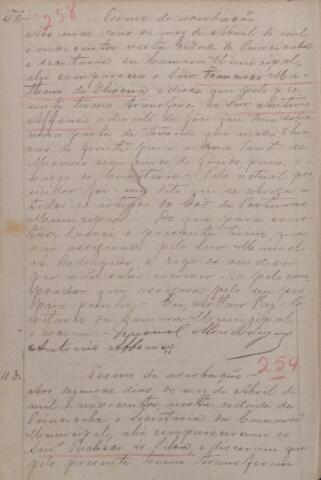 258
Termo de averbação
Aos onze dias do mez de Abril de mil
e novecentos, nesta cidade de Piracicaba
e secretaria da Camara Municipal,
ahi compareceu o Snr. Francisco Ma-
theus de Oliveira e disse que pelo pre-
sente termo transfere ao Snr. Antonio
Affonso o direito de fôro que tem sobre
uma parte de terreno que mede
de frente para a rua
Moraes
largo do Cemiterio. Pelo actual pos-
suidor foi me dito que se obriga a
todos os artigos do Cod. de Posturas
Municipal. Do que para cons-
tar, lavrei o presente termo que
vai assignado pelo Snr. Manoel
Rodrigues a rogo do vendedor
por não saber escrever e pelo com-
prador que assigna pelo seu pro-
prio punho. Eu, Arthur Vaz, Se-
cretario da Camara Municipal,
o escrevi.
Antonio Affonso
259
Termo de averbação
Aos quinze dias do mez de Abril de
mil e novecentos nesta cidade de
Piracicaba e Secretaria da Camara
Municipal, ahi compareceram os
Snrs. Pacheco & Silva e disseram que
pelo presente termo transferem